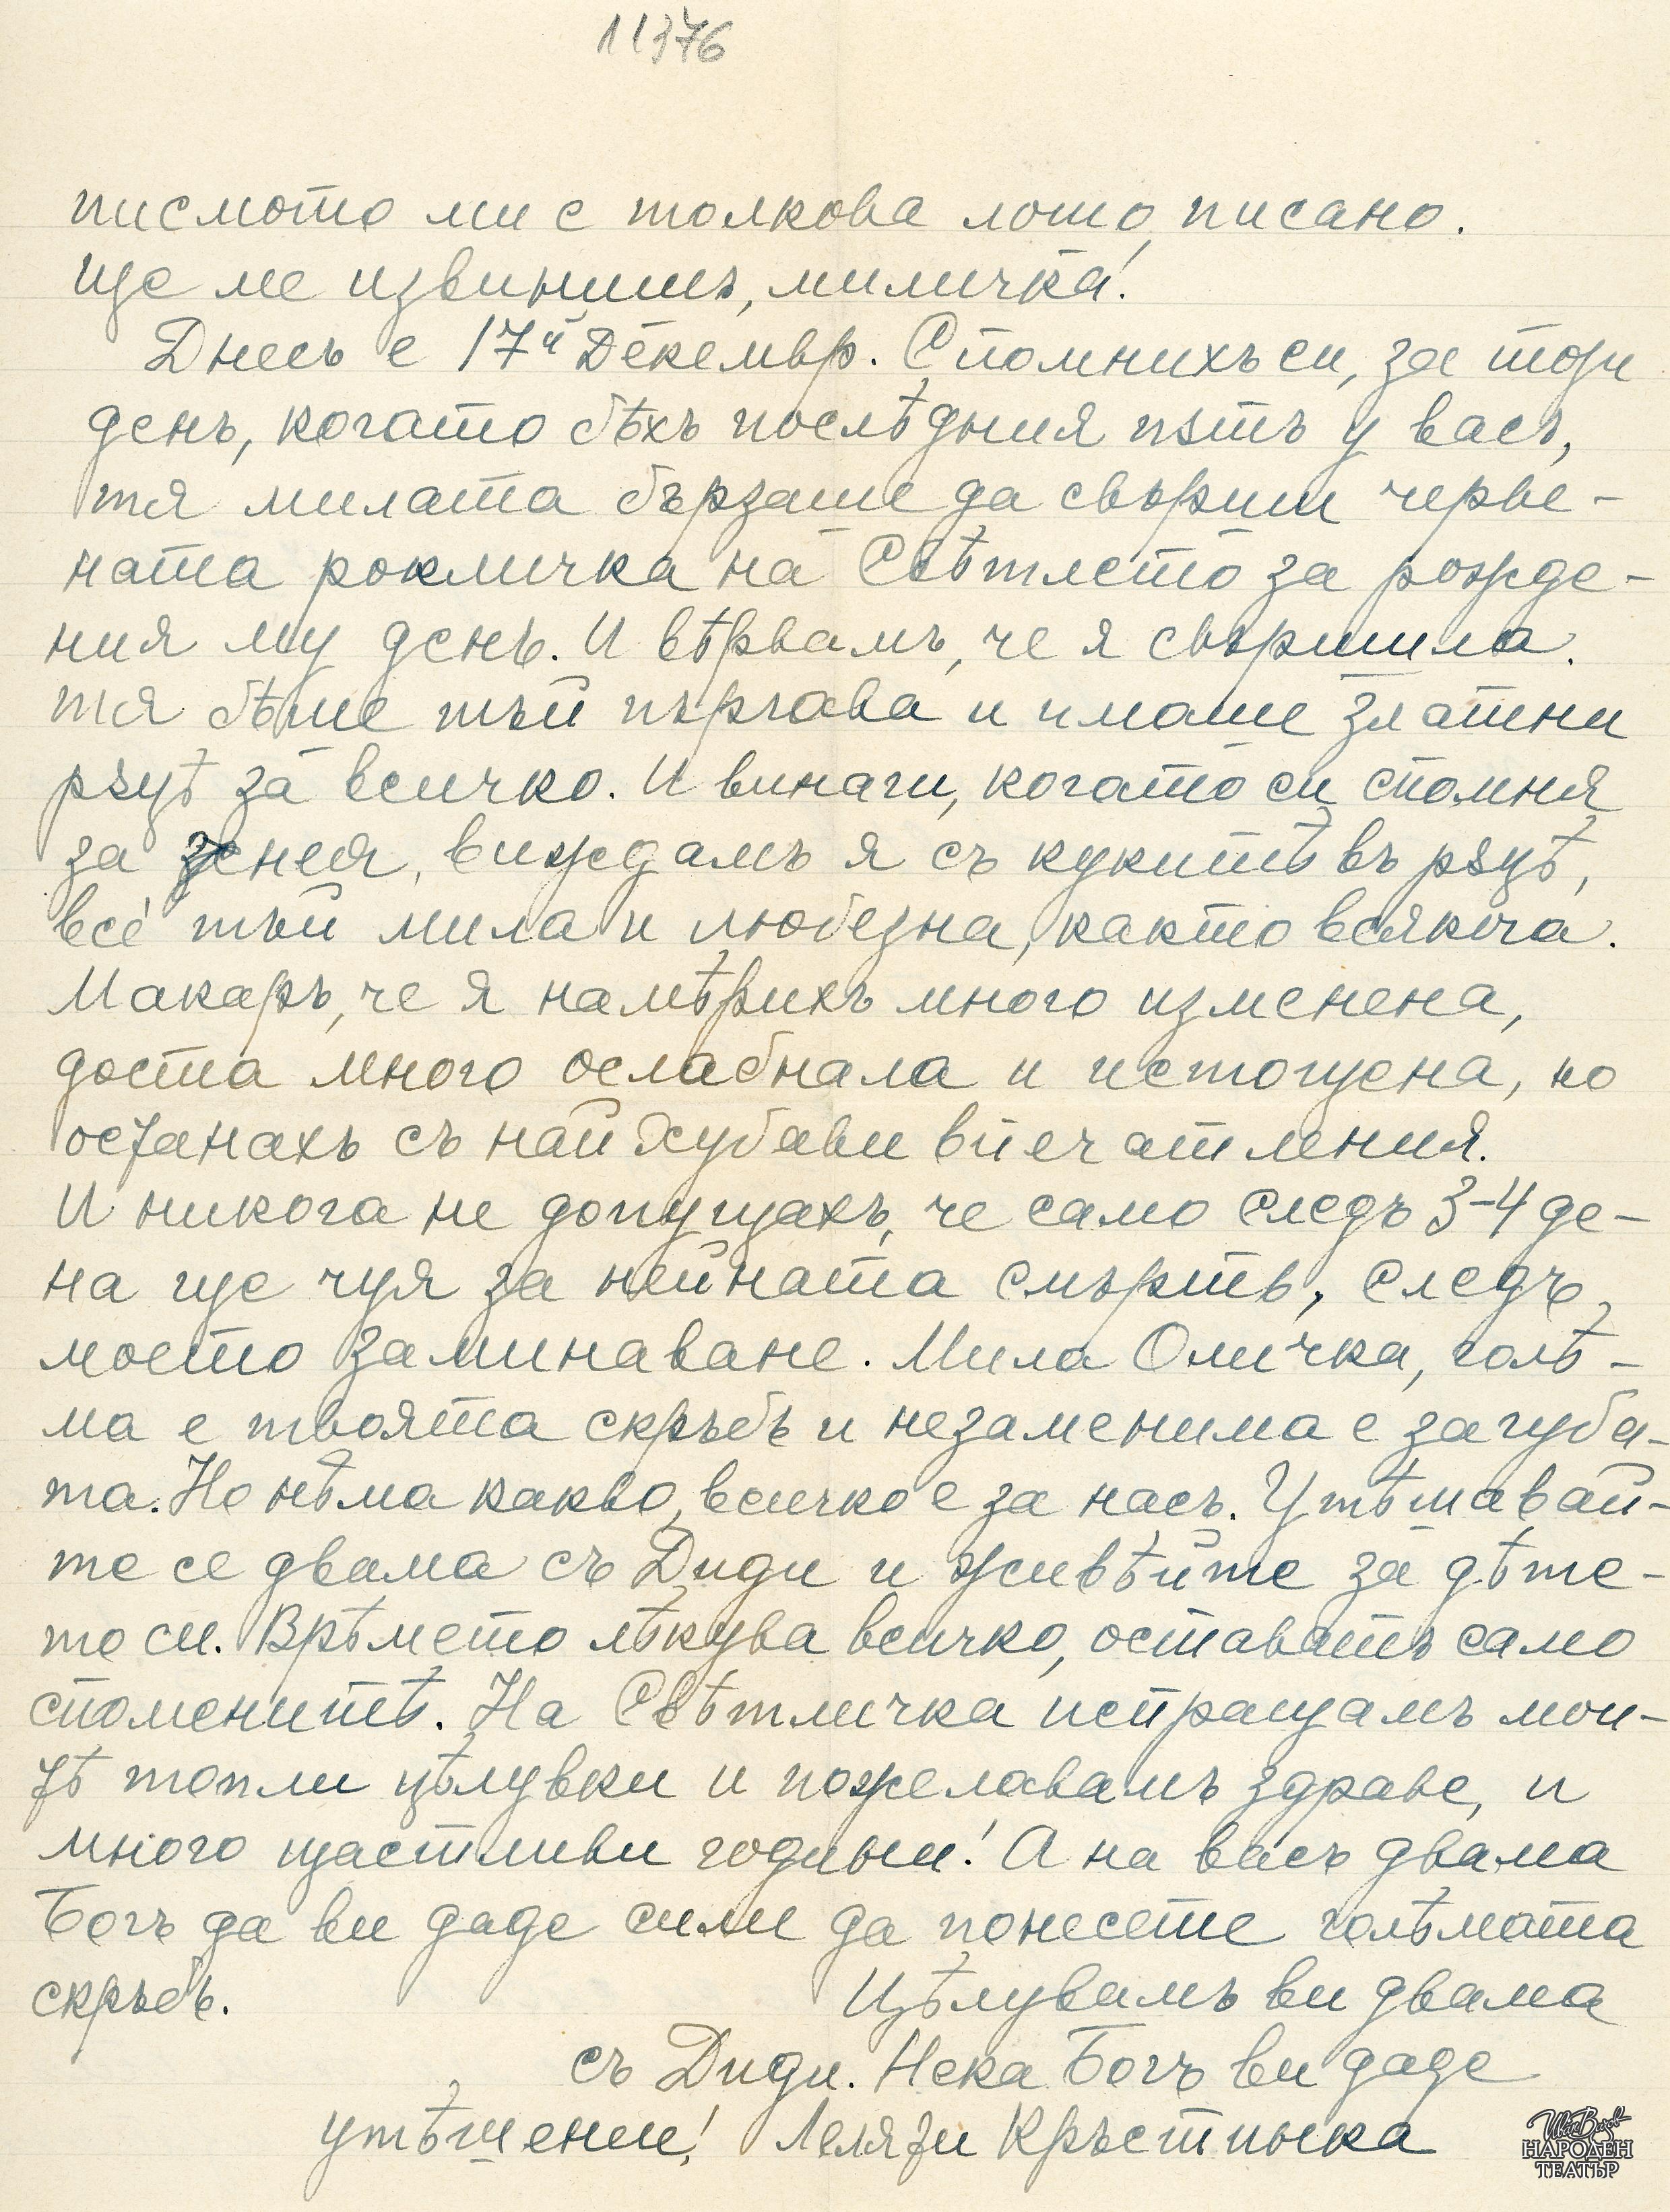 11376
писмото ми е толкова лошо писано.
Ще ме извинишъ, миличка!
Днесъ е 17й Декемвр. Спомнихъ си, за този
день, когато бѣхъ послѣдния пѫть у васъ,
тя милата бързаше да свърши черве-
ната рокличка на Свѣтлето за рожде-
ния му день. И вѣрвамъ, че я свършила.
тя бѣше тъй пъргава и имаше златни
рѫцѣ за всичко. И винаги, когато си спомня
за нея, виждамъ я съ кукитѣ въ рѫцѣ,
все тъй мила и любезна, както всякога.
Макаръ, че я намѣрихъ много изменена,
доста много ослабнала и истощена, но
останахъ съ най хубави впечатления.
И никога не допущахъ, че само следъ 3-4 де-
на ще чуя за нейната смърть, следъ
моето заминаване. Мила Оличка, голѣ-
ма е твоята скръбь и незаменима е загуба-
та. Но нѣма какво, всичко е за насъ. Утѣшавай-
те се двама съ Диди и живѣйте за дѣте-
то си. Врѣмето лѣкува всичко, оставатъ само
споменитѣ. На Свѣтличка испращамъ мои-
тѣ топли цѣлувки и пожелавамъ здраве, и
много щастливи години! А на васъ двама
Богъ да ви даде сили да понесете голѣмата
скръбь. Цѣлувамъ ви двама
съ Диди. Нека Богъ ви даде
утѣшение! Леля ти Кръстинка
НАРОДЕН
ТЕАТЪР